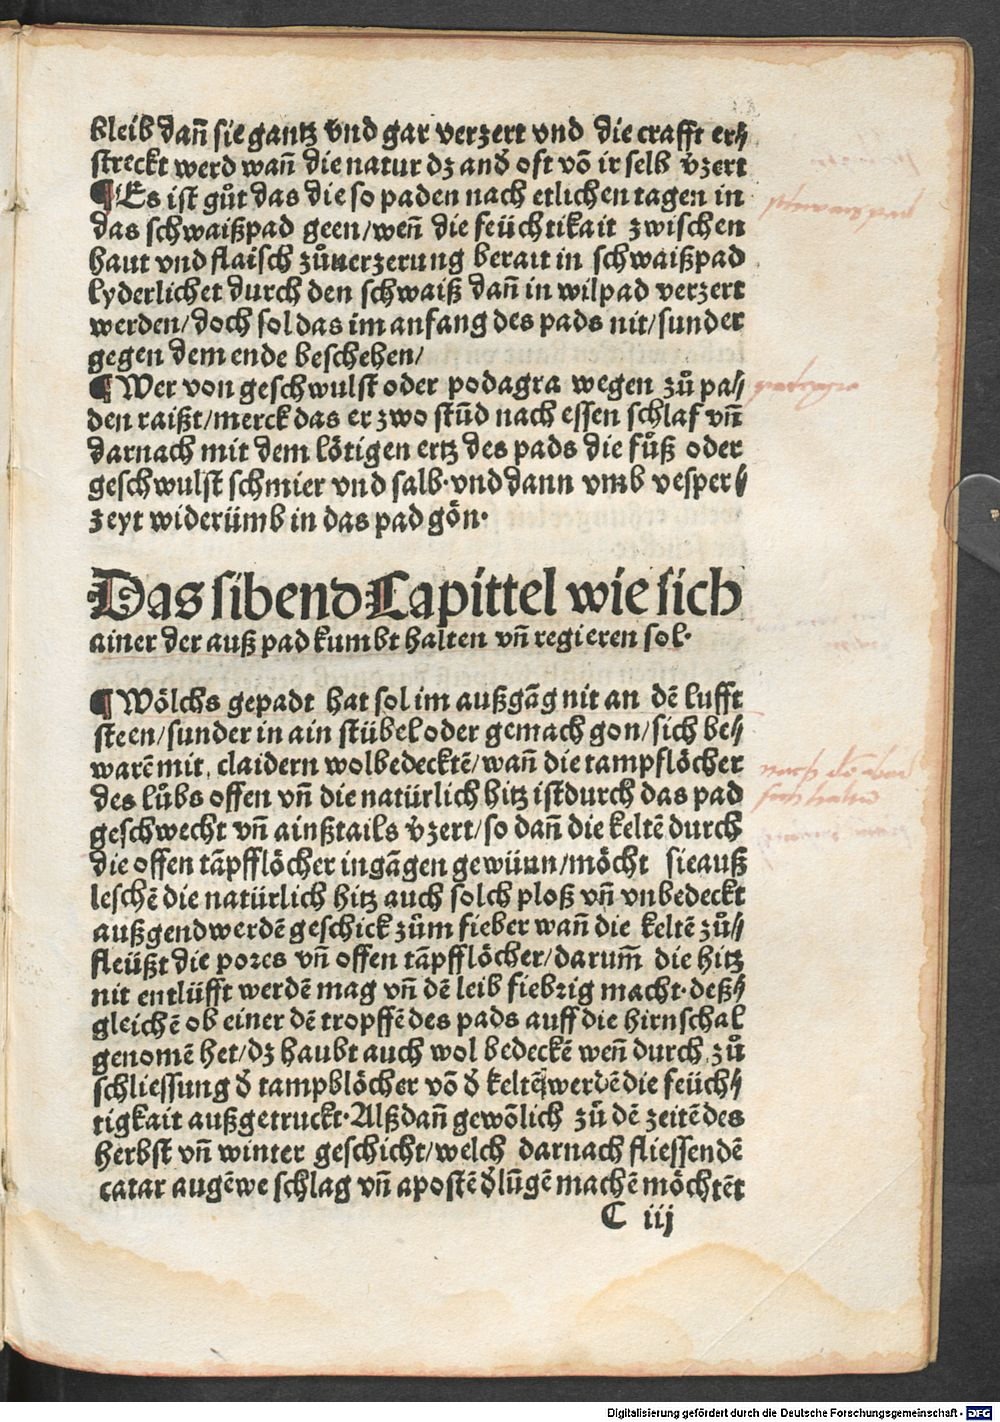 bleib dañ sie gantz vnd gar verzert vnd die crafft er⸗
streckt werd wañ die natur dz and̕ oft võ ir selb v̕zert
¶ Es ist gůt das die so paden nach etlichen tagen in
das schwaißpad geen/weñ die feüchtikait zwischen
haut vnd flaisch zůuerzerung berait in schwaißpad
lyderlichet durch den schwaiß dañ in wilpad verzert
werden/doch sol das im anfang des pads nit/sunder
gegen dem ende beschehen/
¶ Wer von geschwulst oder podagra wegen zů pa⸗
den raißt/merck das er zwo stũd nach essen schlaf vñ
darnach mit dem lötigen ertz des pads die fůß oder
geschwulst schmier vnd salb·vnd dann vmb vesper⸗
zeyt widerümb in das pad gön·
Das sibend Capittel wie sich
ainer der auß pad kumbt halten vñ regieren sol·
¶ Wölchs gepadt hat sol im außgãg nit an dē lufft
steen/sunder in ain stübel oder gemach gon/sich be⸗
warē mit claidern wolbedecktē/wañ die tampflöcher
des lůbs offen vñ die natürlich hitz ist durch das pad
geschwecht vñ ainßtails v̕zert/so dañ die keltē durch
die offen tãpfflöcher ingãgen gewünn/möcht sie auß
leschē die natürlich hitz auch solch ploß vñ vnbedeckt
außgend werdē geschick zům fieber wañ die keltē zů⸗
fleüßt die pores vñ offen tãpfflöcher/darum̃ die hitz
nit entlüfft werdē mag vñ dē leib fiebrig macht·deß⸗
gleichē ob einer dē tropffē des pads auff die hirnschal
genomē het/dz haubt auch wol bedeckē weñ durch zů
schliessung d̕ tampblöcher võ d̕ keltē werdē die feüch⸗
tigkait außgetruckt·Alßdañ gewõlich zů dē zeitē des
herbst vñ winter geschicht/welch darnach fliessendē
catar augēwe schlag vñ apostē d̕ lũgē machē möchtēt
C iij
podagra
nach dē bad
sich halten
Digitalisierung gefördert durch die Deutsche Forschungsgemeinschaft - DFG